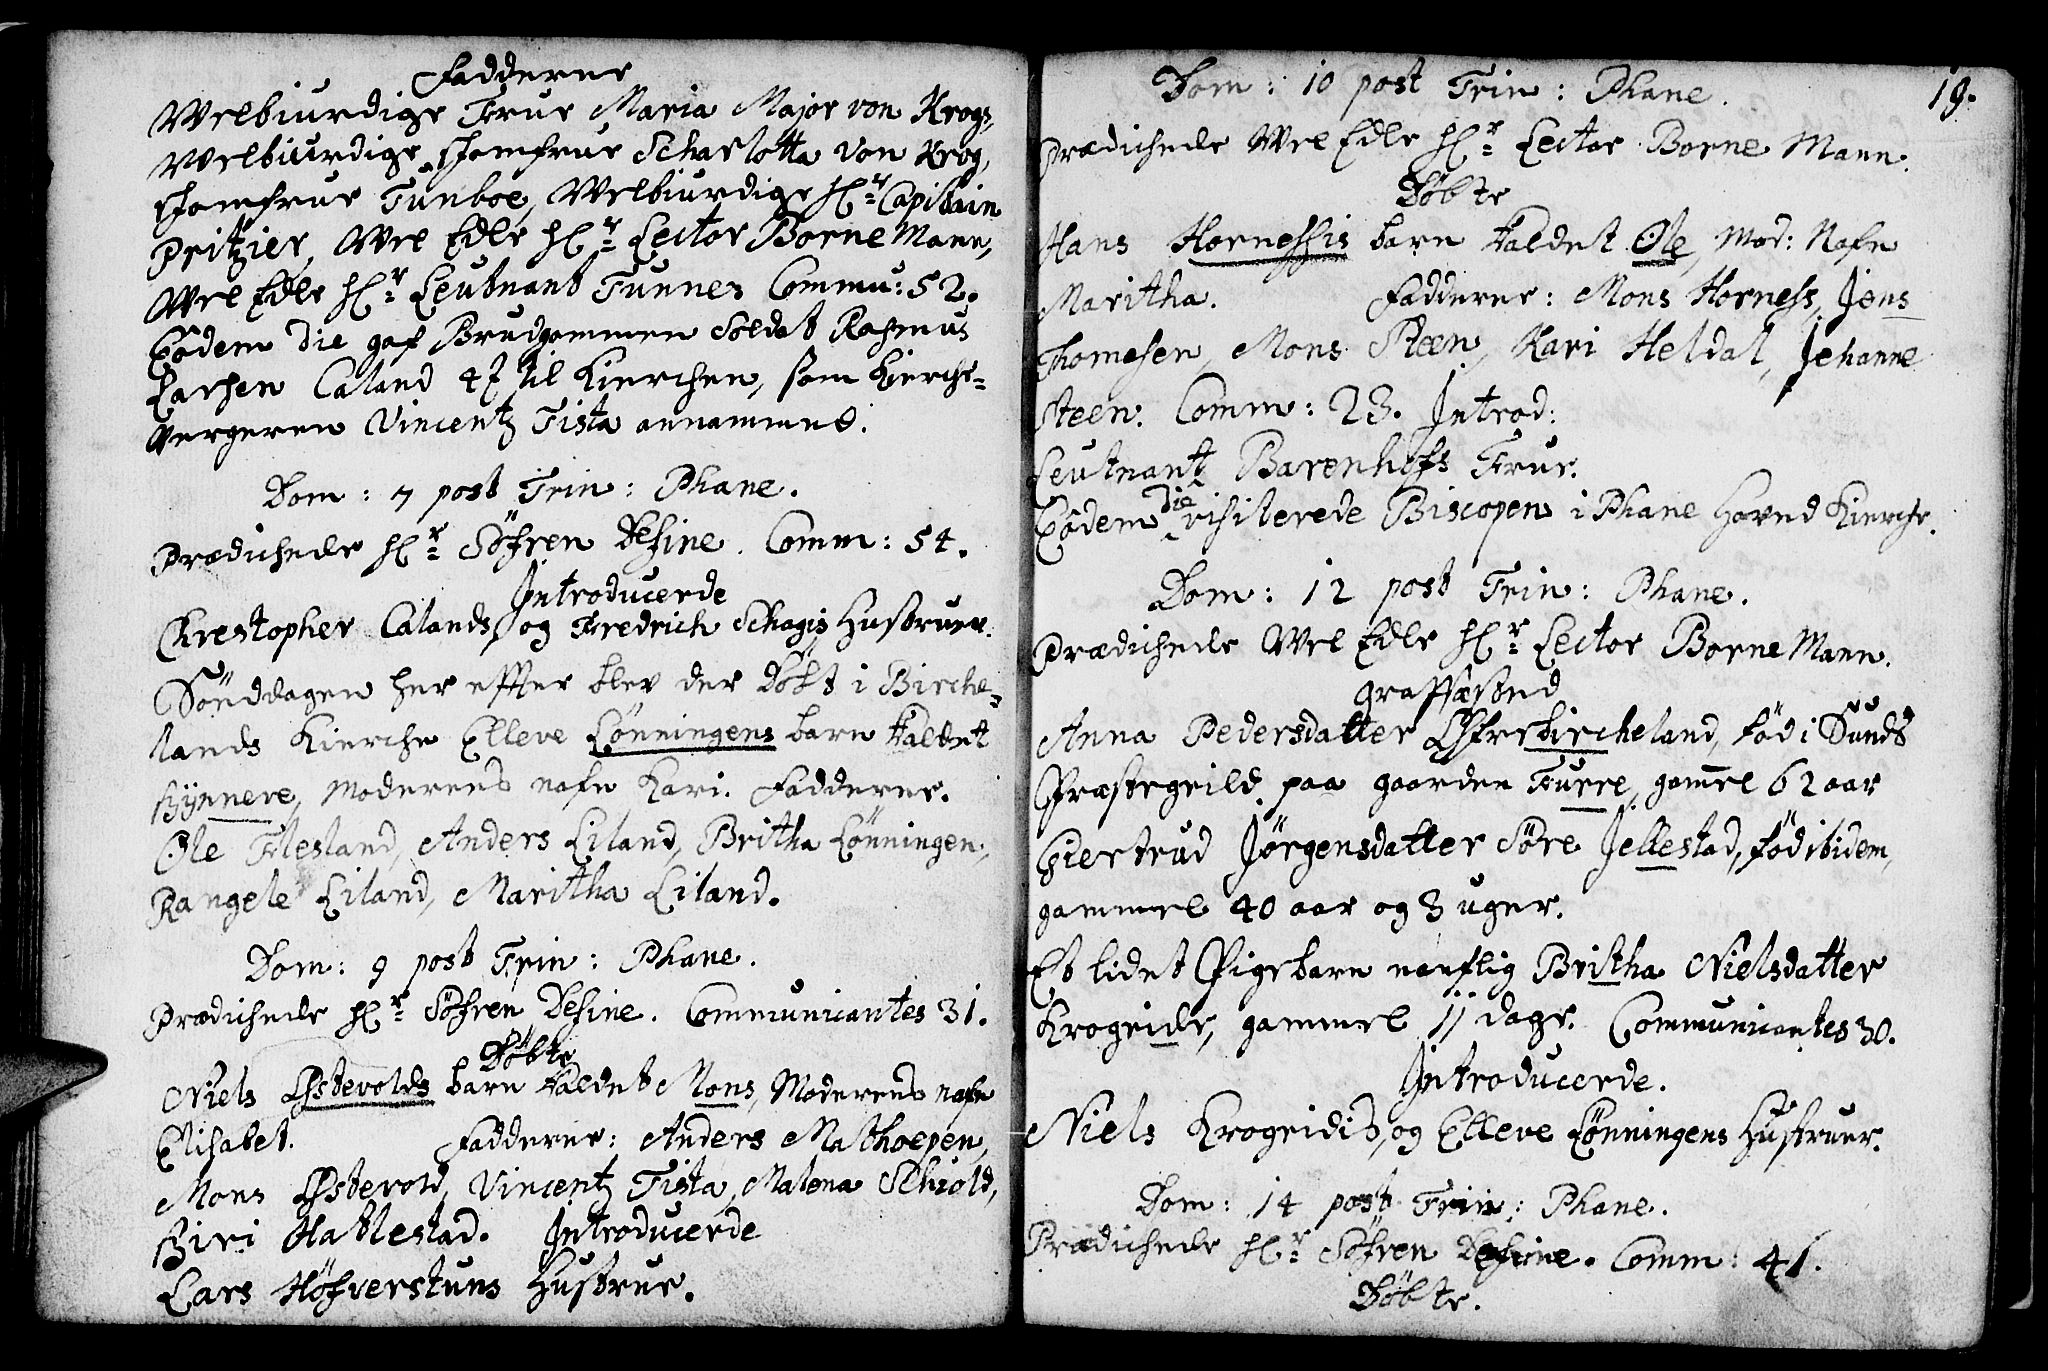 Fadderne
Welbiurdige Frue Maria Major von Krogs,
Welbiurdige Jomfrue Scharlotta von Krog,
Jomfrue Tunboe, Welbiurdige Hr: Capitain
Pritzier, Wel Edle Hr: Lector Borne Mann,
Wel Edle Hr: Leutnant Tunnes Commu: 52.
Eodem die gaf Brudgommen Soldat Rasmus
Larsen Caland 4 til Kierchen, som Kierche-
wergeren Vincentz Tista annammed.
Dom: 7 post Trin: Phane.
Prædichede Hr: Söfren Desine. Comm: 54.
Introducerde
Chrestopher Calands, og Fredrich Schagis Hustruer.
Sönddagen her effter blev der Döbt i Birche-
lands Kierche Elleve Lönningens barn kaldet
Synneve, Moderens nafn Kari. Fadderne.
Ole Flesland, Anders Liland, Britha Lönningen,
Rangele Liland, Maritha Liland.
Dom: 9 post Trin: Phane.
Prædichede Hr: Söfren Desine. Communicantes 31.
Döbte
Niels Østevolds barn kaldet Mons, Moderens nafn
Elisabet. Fadderne: Anders Mathopen,
Mons Østevold, Vincentz Tista, Malena Schiold,
Siri Hatlestad. Introducerde
Lars Höfverstuns Hustrue.
19.
Dom: 10 post Trin: Phane.
Prædichede Wel Edle Hr: Lector Borne Mann.
Döbte
Hans Hornessis barn kaldet Ole, Mod: Nafn
Maritha. Fadderne: Mons Horness, Jens
Thomesen, Mons Steen, Kari Heldal, Jehanne
Steen. Comm: 23. Introd:
Leutnant Barenhofs Frue.
Eodem die visiterede Biscopen i Phane Hoved Kierche.
Dom: 12 post Trin: Phane.
Prædichede Wel Edle Hr: Lector Borne Mann.
Graffæstnd
Anna Pedersdatter Øfrebircheland, föd i Sunds
Præstegeild paa gaarden Tuere, gamel 62 aar
Giertrud Jørgensdatter Söre Jellestad, föd ibidem,
gammel 40 aar og 3 uger.
Et lidet Pigebarn naufnlig Britha Nielsdatter
Krogeide, gammel 11 dage. Communicantes 30.
Introducerde.
Niels Krogeidis, og Elleve Lönningens Hustruer.
Dom: 14 post Trin: Phane.
Prædichede Hr: Söfren Desine. Comm: 41.
Döbte.